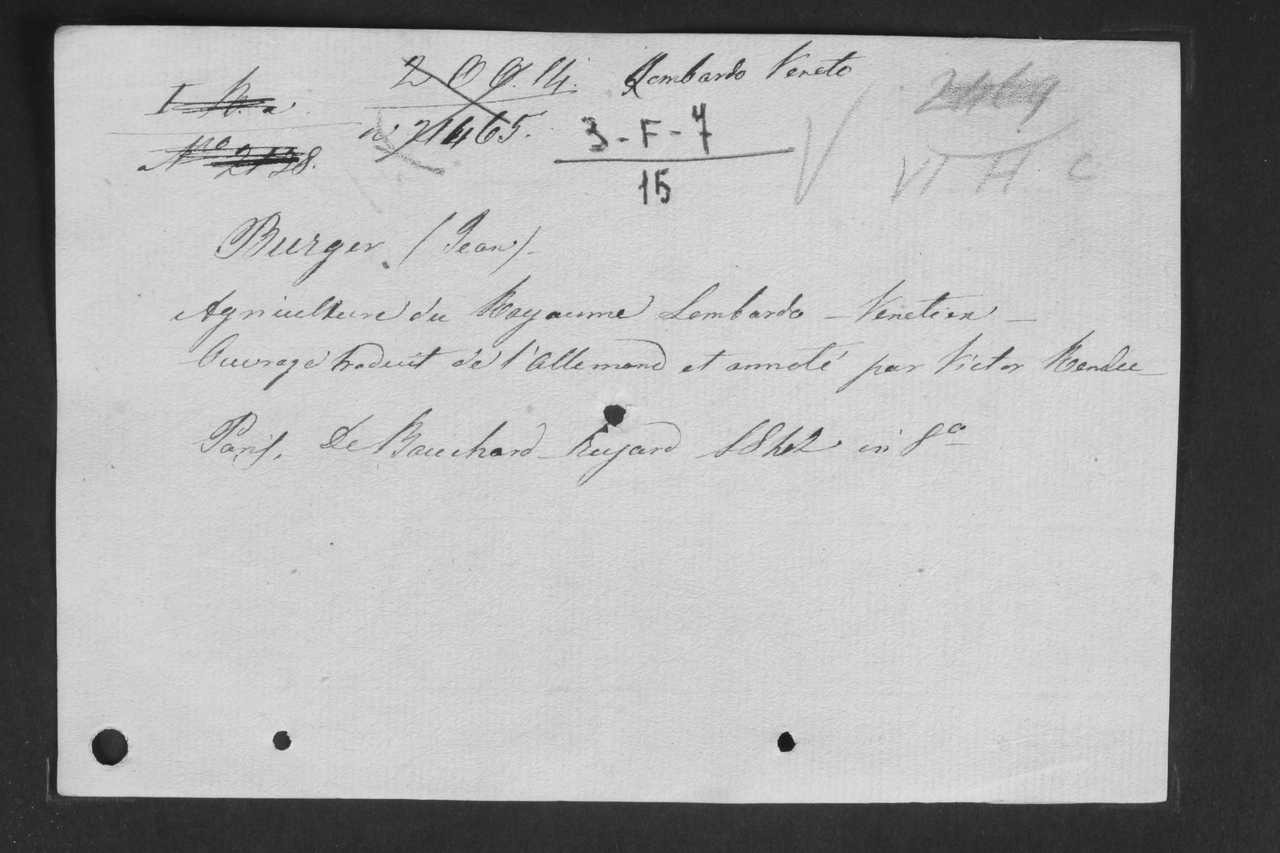 2 0 9. 14. Lombardo Veneto
I b. a.
Nº 2128.
nº 21465.
3-F-7
15
2469
VI H C
Burger (Jean)-
Agriculture du Royaume Lombardo - Venetien -
Ouvrage traduit de l'Allemand et annoté par Victor Rendu -
Paris, De Bouchard-Huzard 1842 in 8º